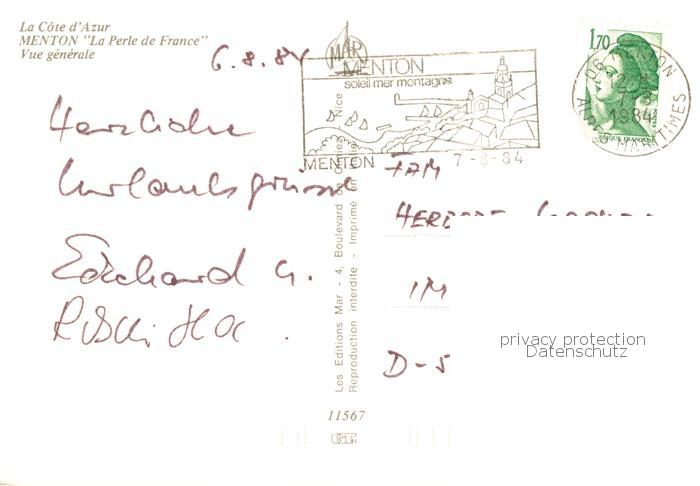 La Côte d'Azur
MENTON "La Perle de France"
Vue générale
6.8.84
Herzliche
Urlaubsgrüsse
Eckhard G.
MAR
MENTON
soleil mer montagne
MENTON 7-8-84
1,70
06 MENTON
7-8
1984
ALPES MARITIMES
FAM
HERBERT
IM
D-5
Les Editions Mar - 4, Boulevard de Nice
Reproduction interdite - Imprimé en
11567
privacy protection
Datenschutz